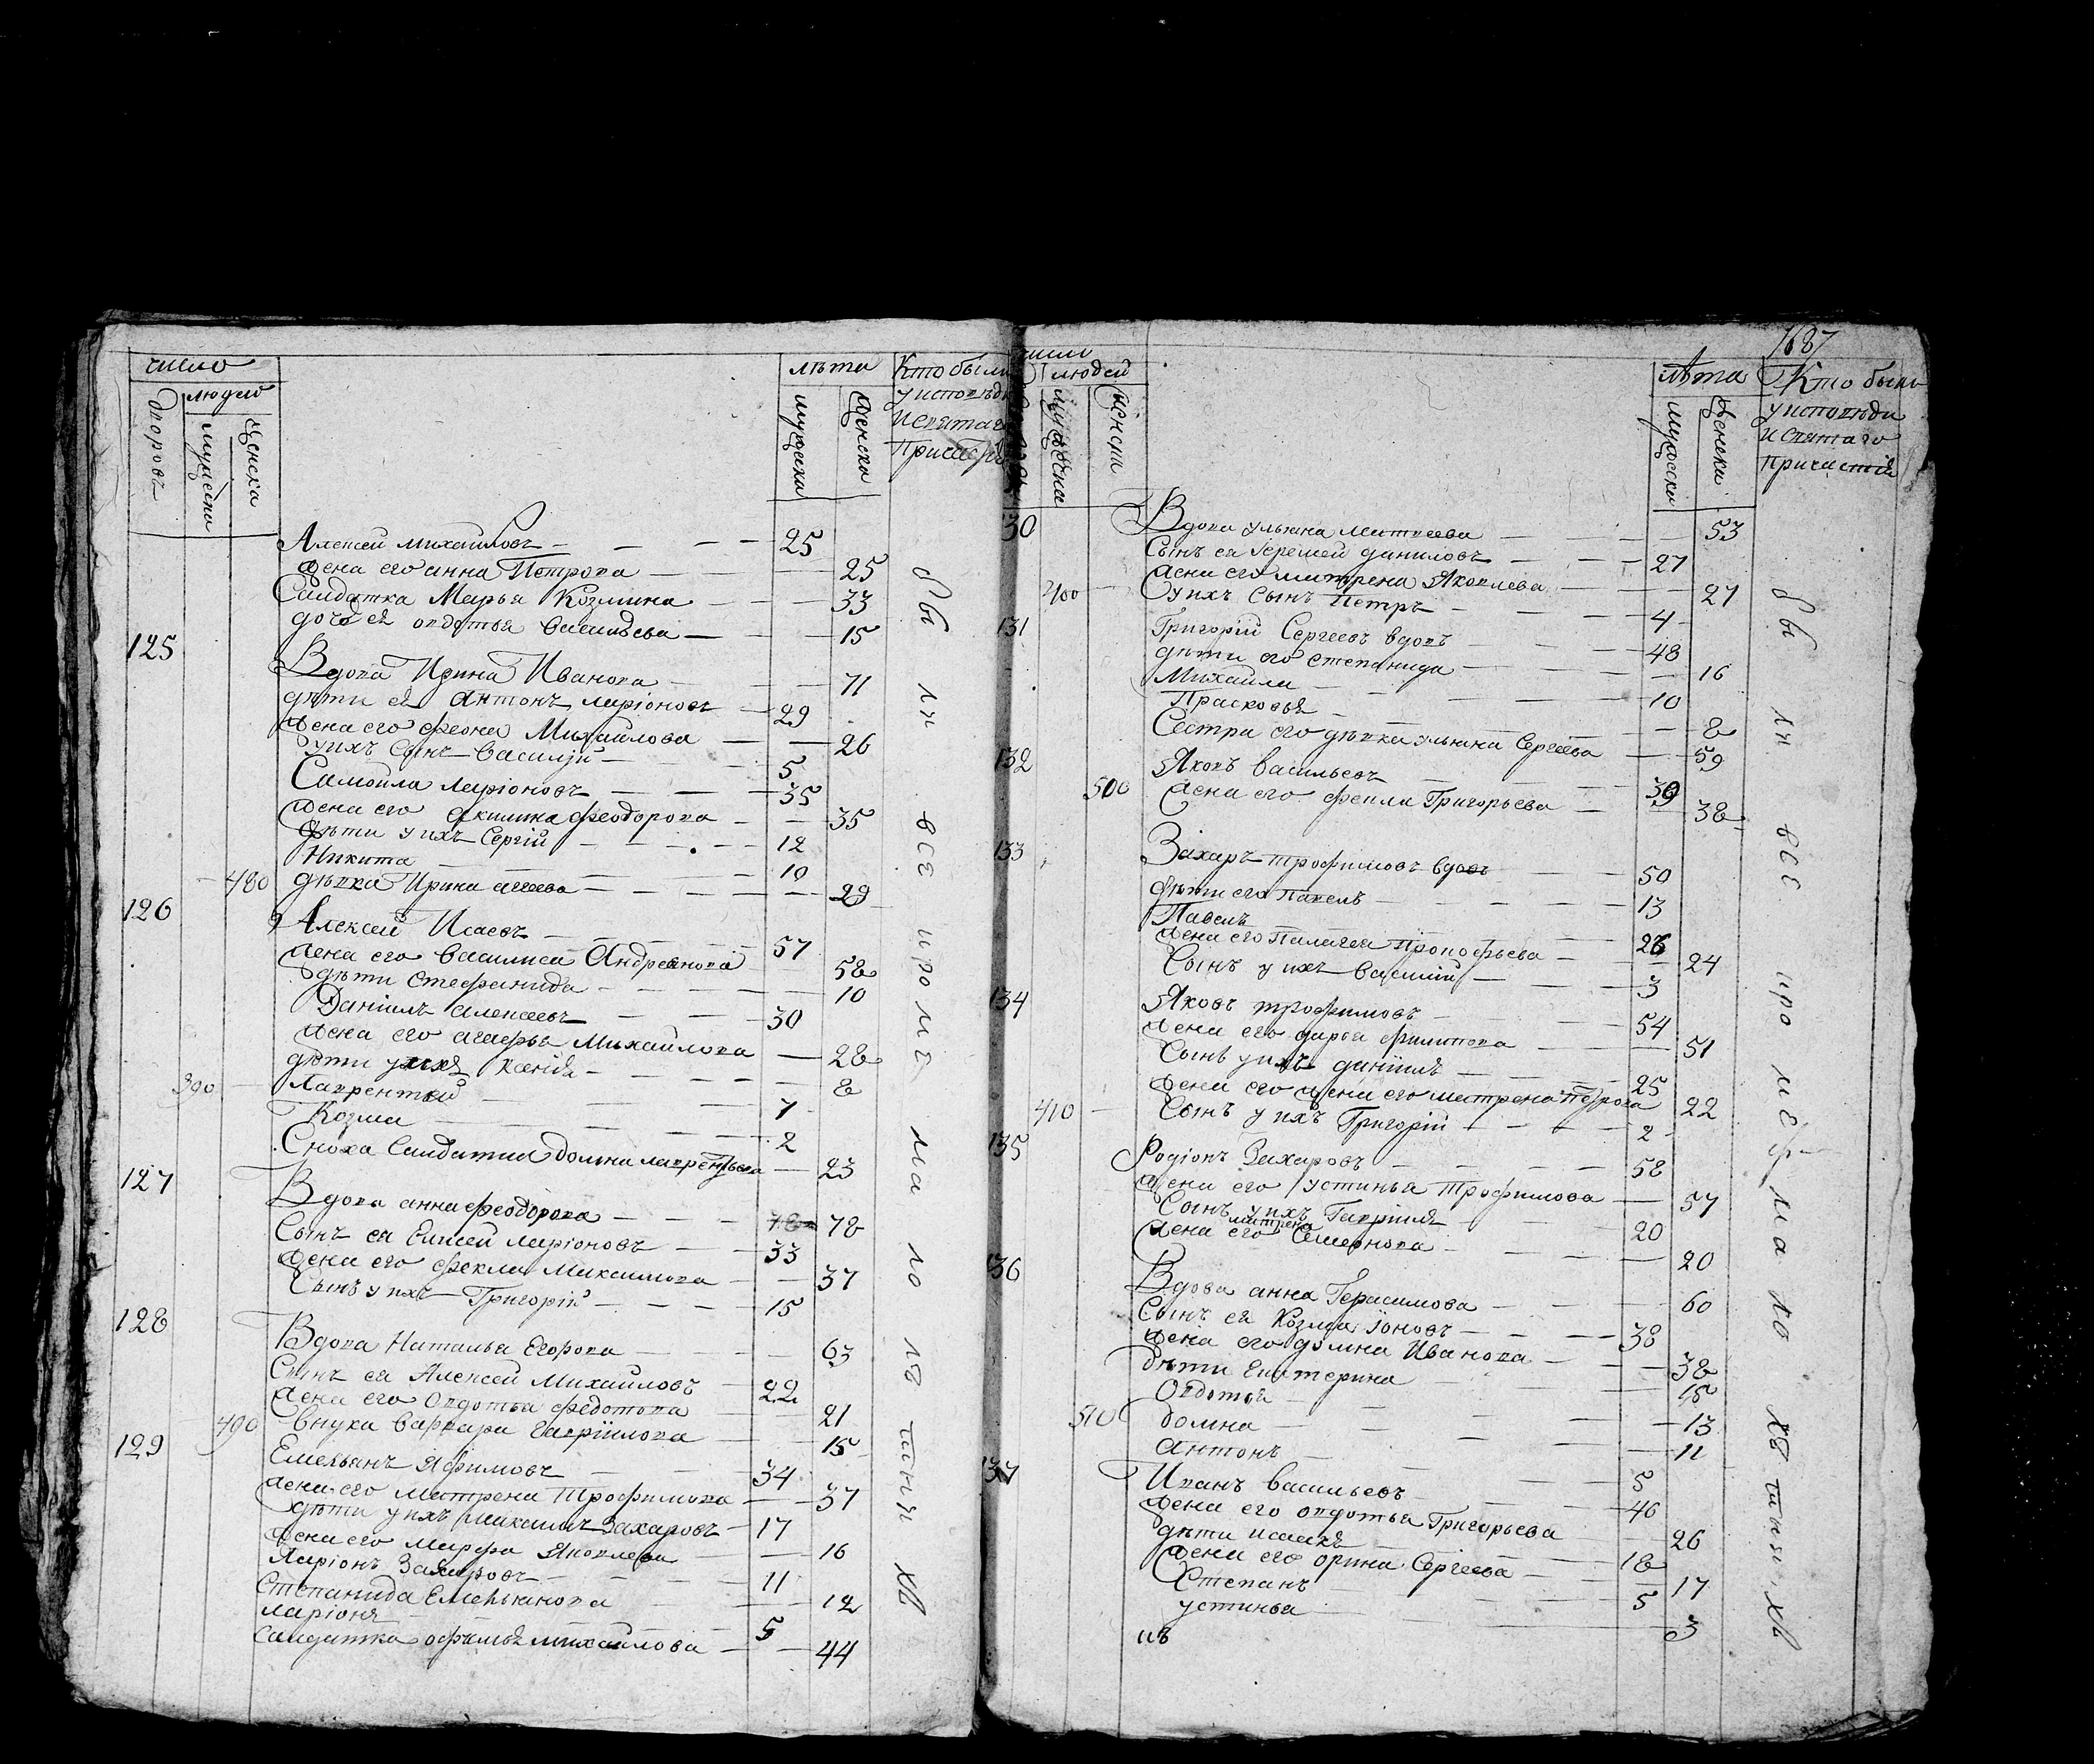 число
лѣта
Кто былъ
дворовъ
людей
мужеска
женска
мужеска
женска
у исповѣди
и святаго
Алексей Михайловъ 25
жена его анна Петрова 25
Салдатка Марья Козмина 33
дочь ея овдотья васильева 15
125
Вдова Ирина Иванова 71
дѣти ея Антонъ ларіоновъ 29
жена его феона Михайлова 26
у ихъ Сынъ василій 5
Самойла ларіоновъ 35
жена его акилина феодорова 35
дѣти у ихъ Сергій 12
Никита 10
480 дѣвка Ирина агеева 29
126 Алексей Исаевъ 57
жена его василиса Андреянова 58
дѣти Стефанида 10
Даніилъ алексеевъ 30
жена его агафья Михайлова 28
дѣти у ихъ Ксенія 8
390 Лаврентей 7
Козма 2
Сноха Салдатка домна лаврентьева 23
127 Вдова анна феодорова 78
Сынъ ея Елисей ларіоновъ 33
жена его фекла Максимова 37
Сынъ у ихъ Григорій 15
128 Вдова Наталья Егорова 63
Сынъ ея Алексей Михайловъ 22
жена его Овдотья федотова 21
490 внука варвара гавріилова 15
129 Емельянъ Яфимовъ 34
жена его матрена Трофимова 37
дѣти у ихъ Максимъ Захаровъ 17
жена его марфа Яковлева 16
Ларіонъ Захаровъ 11
Степанида Емельянова 12
ларіонъ 5
Салдатка офимья михайлова 44
бы ли всѣ
1687
людей
женска
лѣта
Кто былъ
мужеска
женска
у исповѣди
и святаго
причастія
130 Вдова ульяна матвеева 53
Сынъ ея Іеремей даниловъ 27
жена его матрена Яковлева 27
400 у ихъ Сынъ Петръ 4
131 Григорій Сергеевъ вдовъ 48
дѣти его степанида 16
Михайла 10
Прасковья 8
Сестра его дѣвка ульяна Сергеева 59
132 Яковъ васильевъ 39
500 жена его фекла Григорьева 38
133 Захаръ трофимовъ вдовъ 50
дѣти его павелъ 13
Павелъ 26
жена его Палагея прокофьева 24
Сынъ у ихъ василій 3
134 Яковъ трофимовъ 54
жена его дарья филипова 51
Сынъ у ихъ даніилъ 25
жена его жена его матрена петрова 22
410 Сынъ у ихъ Григорій 2
135 Родіонъ Захаровъ 58
жена его устинья Трофимова 57
Сынъ у ихъ Гавріилъ 20
жена его матрена Семенова 20
136 Вдова анна Герасимова 60
Сынъ ея Козма іоновъ 38
жена его домна Иванова 38
дѣти Екатерина 15
Овдотья 13
510 домна 11
антонъ 5
137 Иванъ васильевъ 46
жена его овдотья Григорьева 26
дѣти исаакъ 18
жена его орина Сергеева 17
Степанъ 5
устинья 3
бы ли всѣ